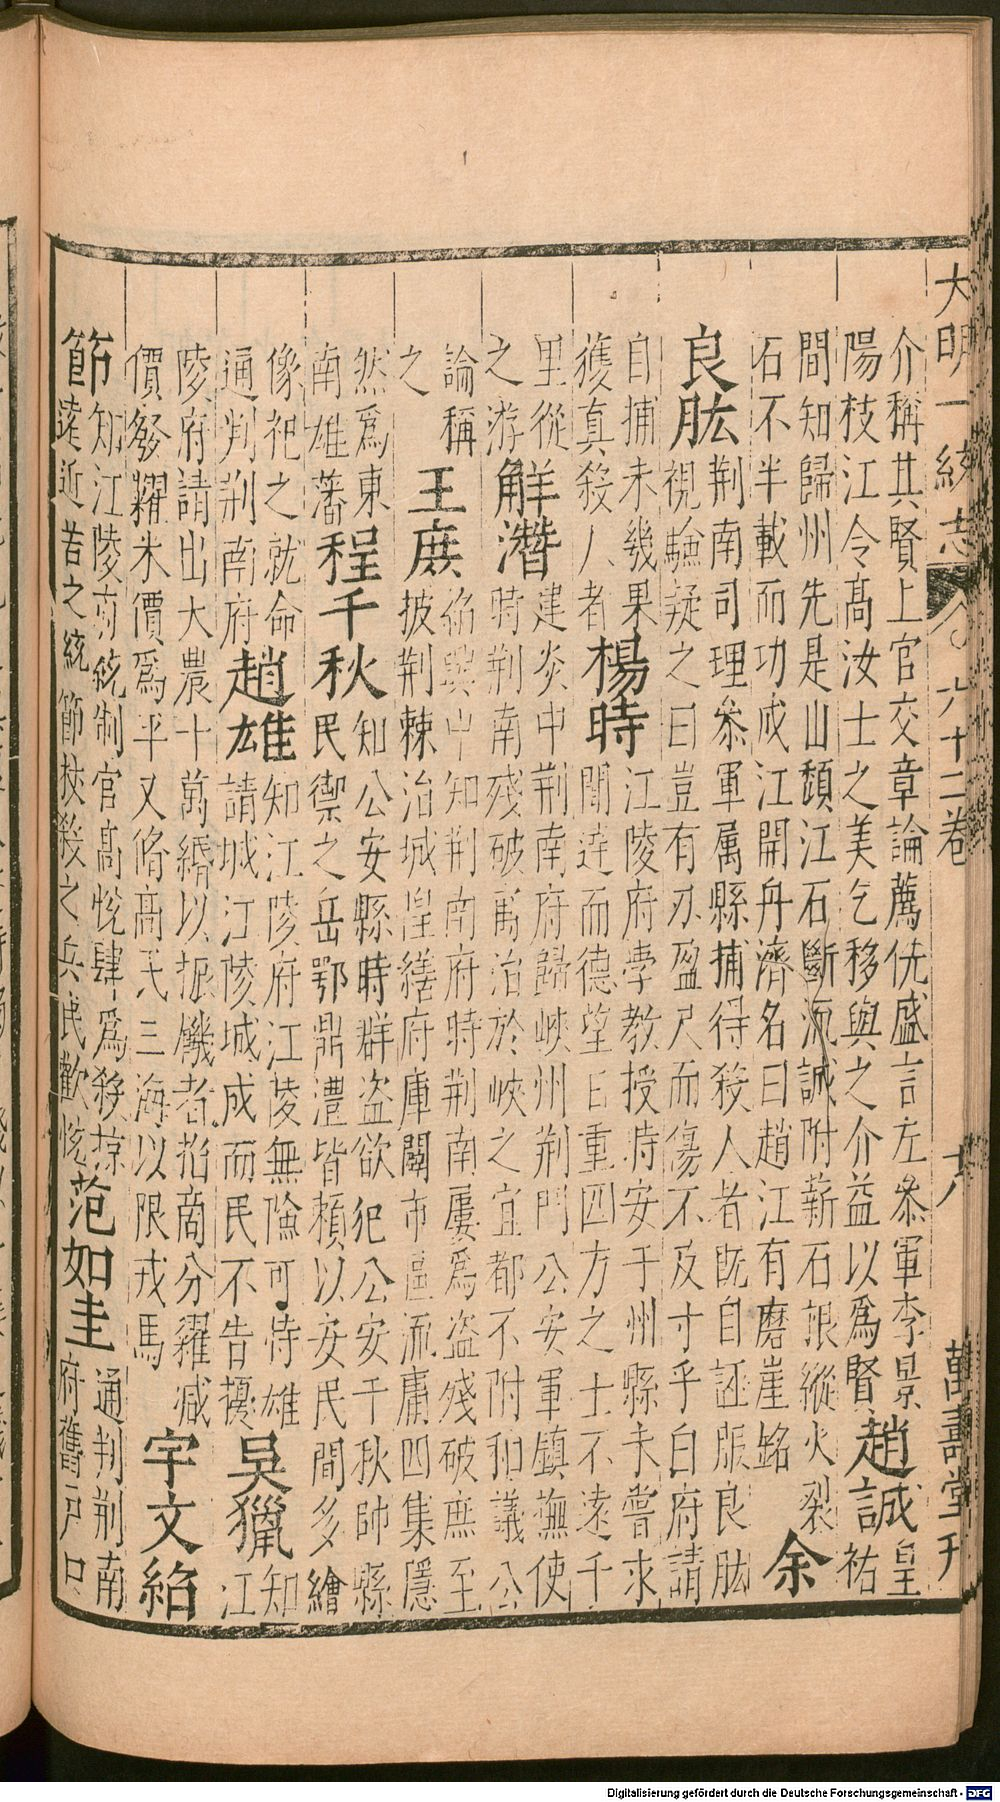 大明一統志 六十二卷 十八 萬壽堂刊
介稱其賢上官交章論薦侁盛言左叅軍李景
陽枝江令髙汝士之美乞移與之介益以為賢 趙誠 皇
祐
間知歸州先是山頹江石斷流誠附薪石根縱火裂
石不半載而功成江開舟濟名曰趙江有磨崖銘 余
良肱 荆南司理叅軍属縣捕得殺人者既自誣服良肱
視驗疑之曰豈有刃盈尺而傷不及寸乎白府請
自捕未幾果
獲真殺人者 楊時 江陵府學教授時安于州縣未嘗求
聞達而德望日重四方之士不遠千
里從
之游 解潛 建炎中荆南府歸峽州荆門公安軍鎮撫使
時荆南殘破寓治於峽之宜都不附和議公
論稱
之 王庶 紹興中知荆南府時荆南屢為盗殘破庶至
披荆棘治城隍繕府庫闢市區流庸四集隱
然為東
南雄藩 程千秋 知公安縣時群盗欲犯公安千秋帥縣
民禦之岳鄂鼎澧皆賴以安民間多繪
像祀之就命
通判荆南府 趙雄 知江陵府江陵無險可恃雄
請城江陵城成而民不告擾 吳獵 知
江
陵府請出大農十萬緡以振饑者招商分糴减
價發糶米價為平又脩髙氏三海以限戎馬 宇文紹
節 知江陵府統制官髙悦肆為殺掠
遠近苦之統節杖殺之兵民歡悦 范如圭 通判荆南
府舊戶口
Digitalisierung gefördert durch die Deutsche Forschungsgemeinschaft - DFG